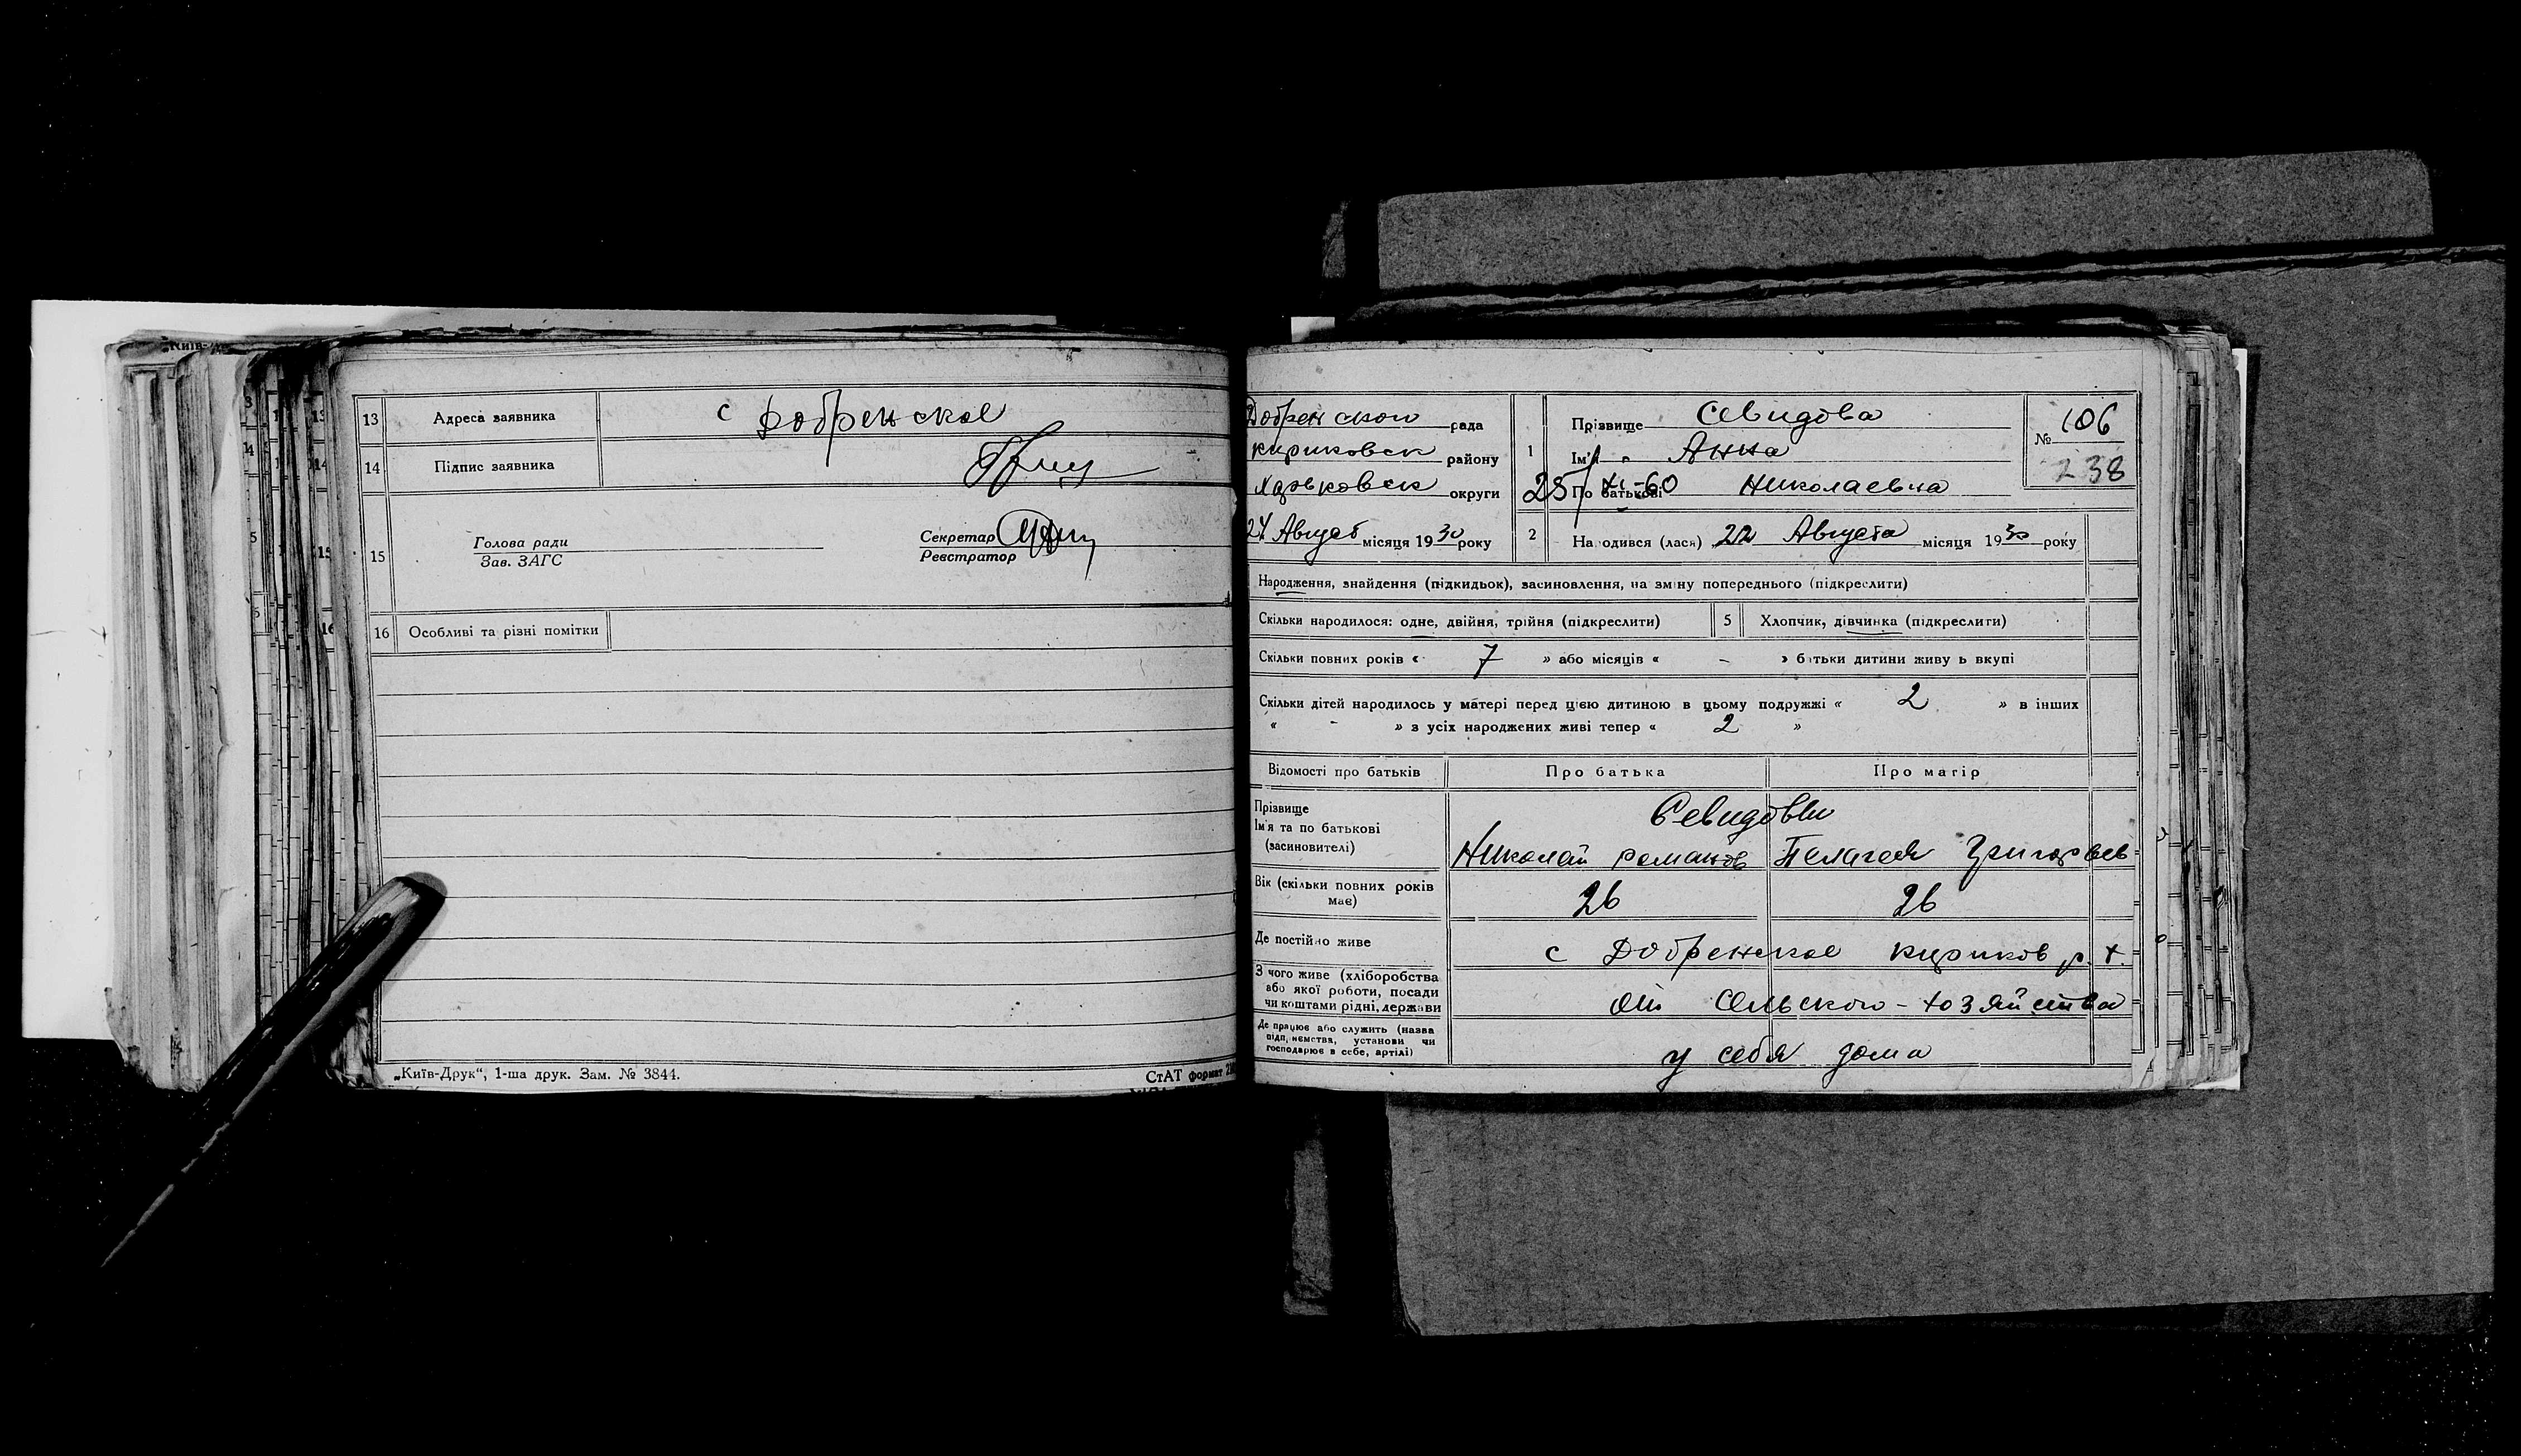 13 Адреса заявника с Добренское
14 Підпис заявника
15 Голова ради Секретар
Зав. ЗАГС Реєстратор
16 Особливі та різні помітки
„Київ-Друк“, 1-ша друк. Зам. № 3844.
СтАТ формат
Добренской рада
кириковск району
Харьковск округи
24 Август місяця 1930 року
1 Прізвище Севидова
Ім'я Анна
По батькові Николаевна
25/XI-60
№ 106
238
2 Народився (лася) 22 Августа місяця 1930 року
Народження, знайдення (підкидьок), засиновлення, на зміну попереднього (підкреслити)
Скільки народилося: одне, двійня, трійня (підкреслити) 5 Хлопчик, дівчинка (підкреслити)
Скільки повних років « 7 » або місяців « - » батьки дитини живуть вкупі
Скільки дітей народилось у матері перед цією дитиною в цьому подружжі « 2 » в інших
« - » з усіх народжених живі тепер « 2 »
Відомості про батьків Про батька Про матір
Прізвище Севидовы
Ім'я та по батькові
(засиновителі) Николай романов Пелагея Григорьев
Вік (скільки повних років має) 26 26
Де постійно живе с Добренское кириков р. х.
З чого живе (хліборобства
або якої роботи, посади
чи коштами рідні, держави от Сельского-хозяйства
Де працює або служить (назва
підприємства, установи чи
господарює в себе, артілі) у себя дома